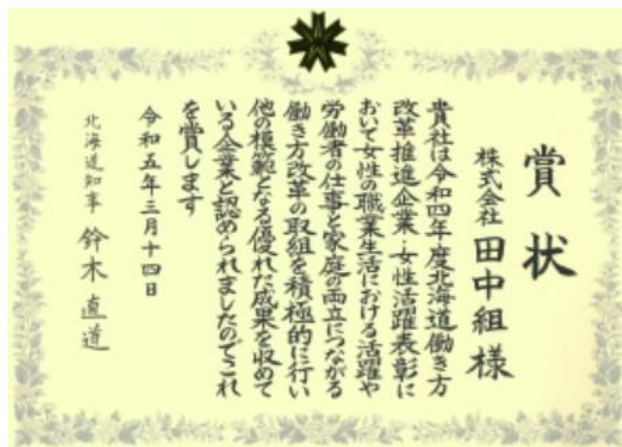 賞状
株式会社 田中組 様
貴社は令和四年度北海道働き方
改革推進企業・女性活躍表彰に
おいて女性の職業生活における活躍や
労働者の仕事と家庭の両立につながる
働き方改革の取組を積極的に行い
他の模範となる優れた成果を収めて
いる企業と認められましたのでこれ
を賞します
令和五年三月十四日
北海道知事 鈴木直道